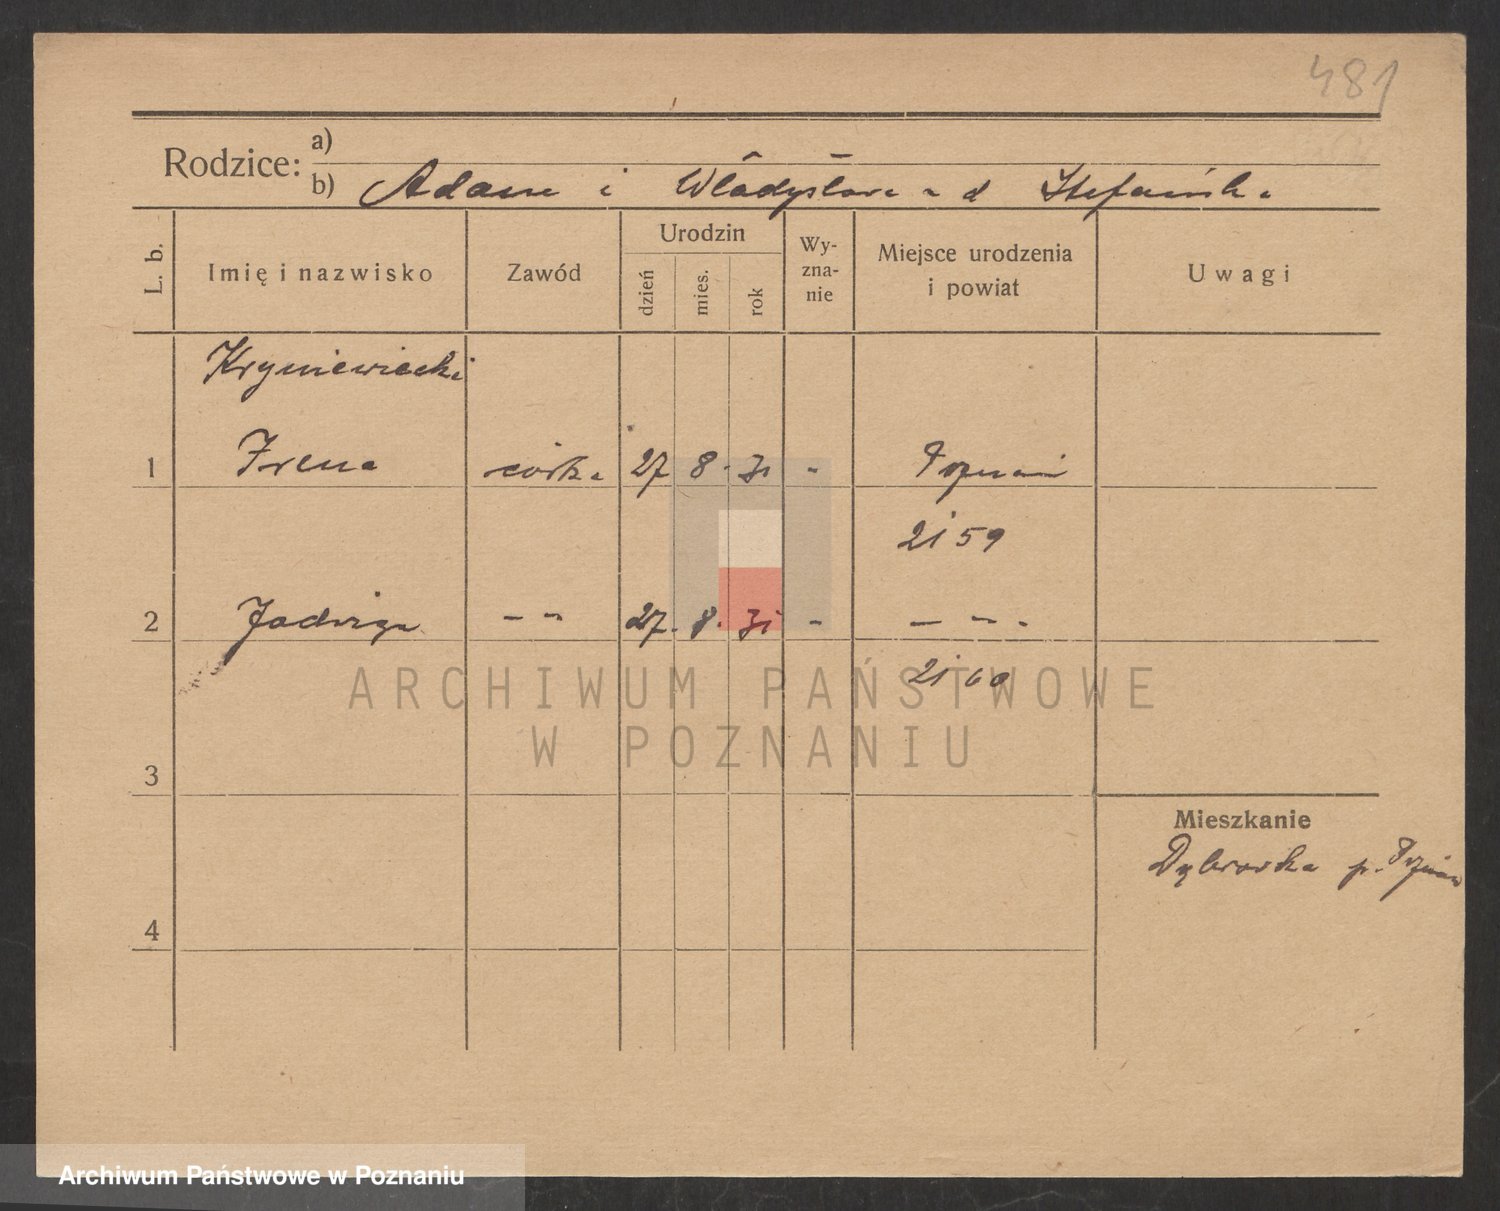 481
Rodzice: a)
b) Adam i Władysława d Stefańska
L. b. Imię i nazwisko Zawód Urodzin dzień mies. rok Wy-zna-nie Miejsce urodzenia i powiat Uwagi
Kryniewiecki
1 Irena córka 27 8. 31 - Poznań
2159
2 Jadwiga - - 27. 8. 31 - - - -
2160
ARCHIWUM PAŃSTWOWE
W POZNANIU
3
Mieszkanie
Dąbrówka p. Poznań
4
Archiwum Państwowe w Poznaniu